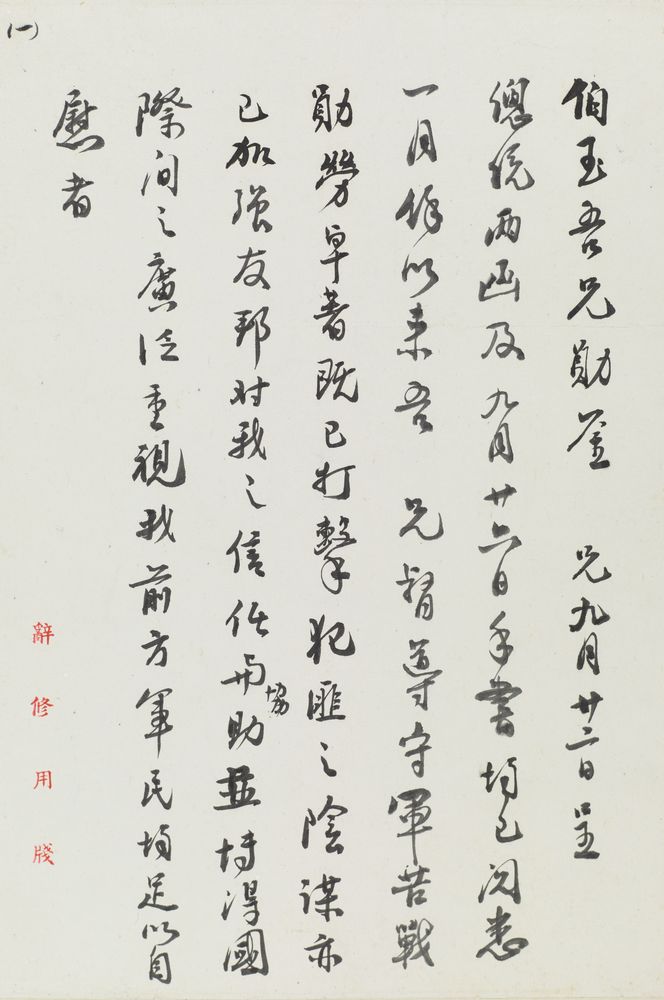 (一)
伯玉吾兄勛鉴 兄九月廿二日呈
總統兩函及九月廿六日手書均已閱悉
一月餘以來吾 兄督導守軍苦戰
勛勞卓著既已打擊犯匪之陰謀亦
已加強友邦对我之信任与協助並博得國
際间之廣泛重視我前方軍民均足以自
慰者
辭修用牋